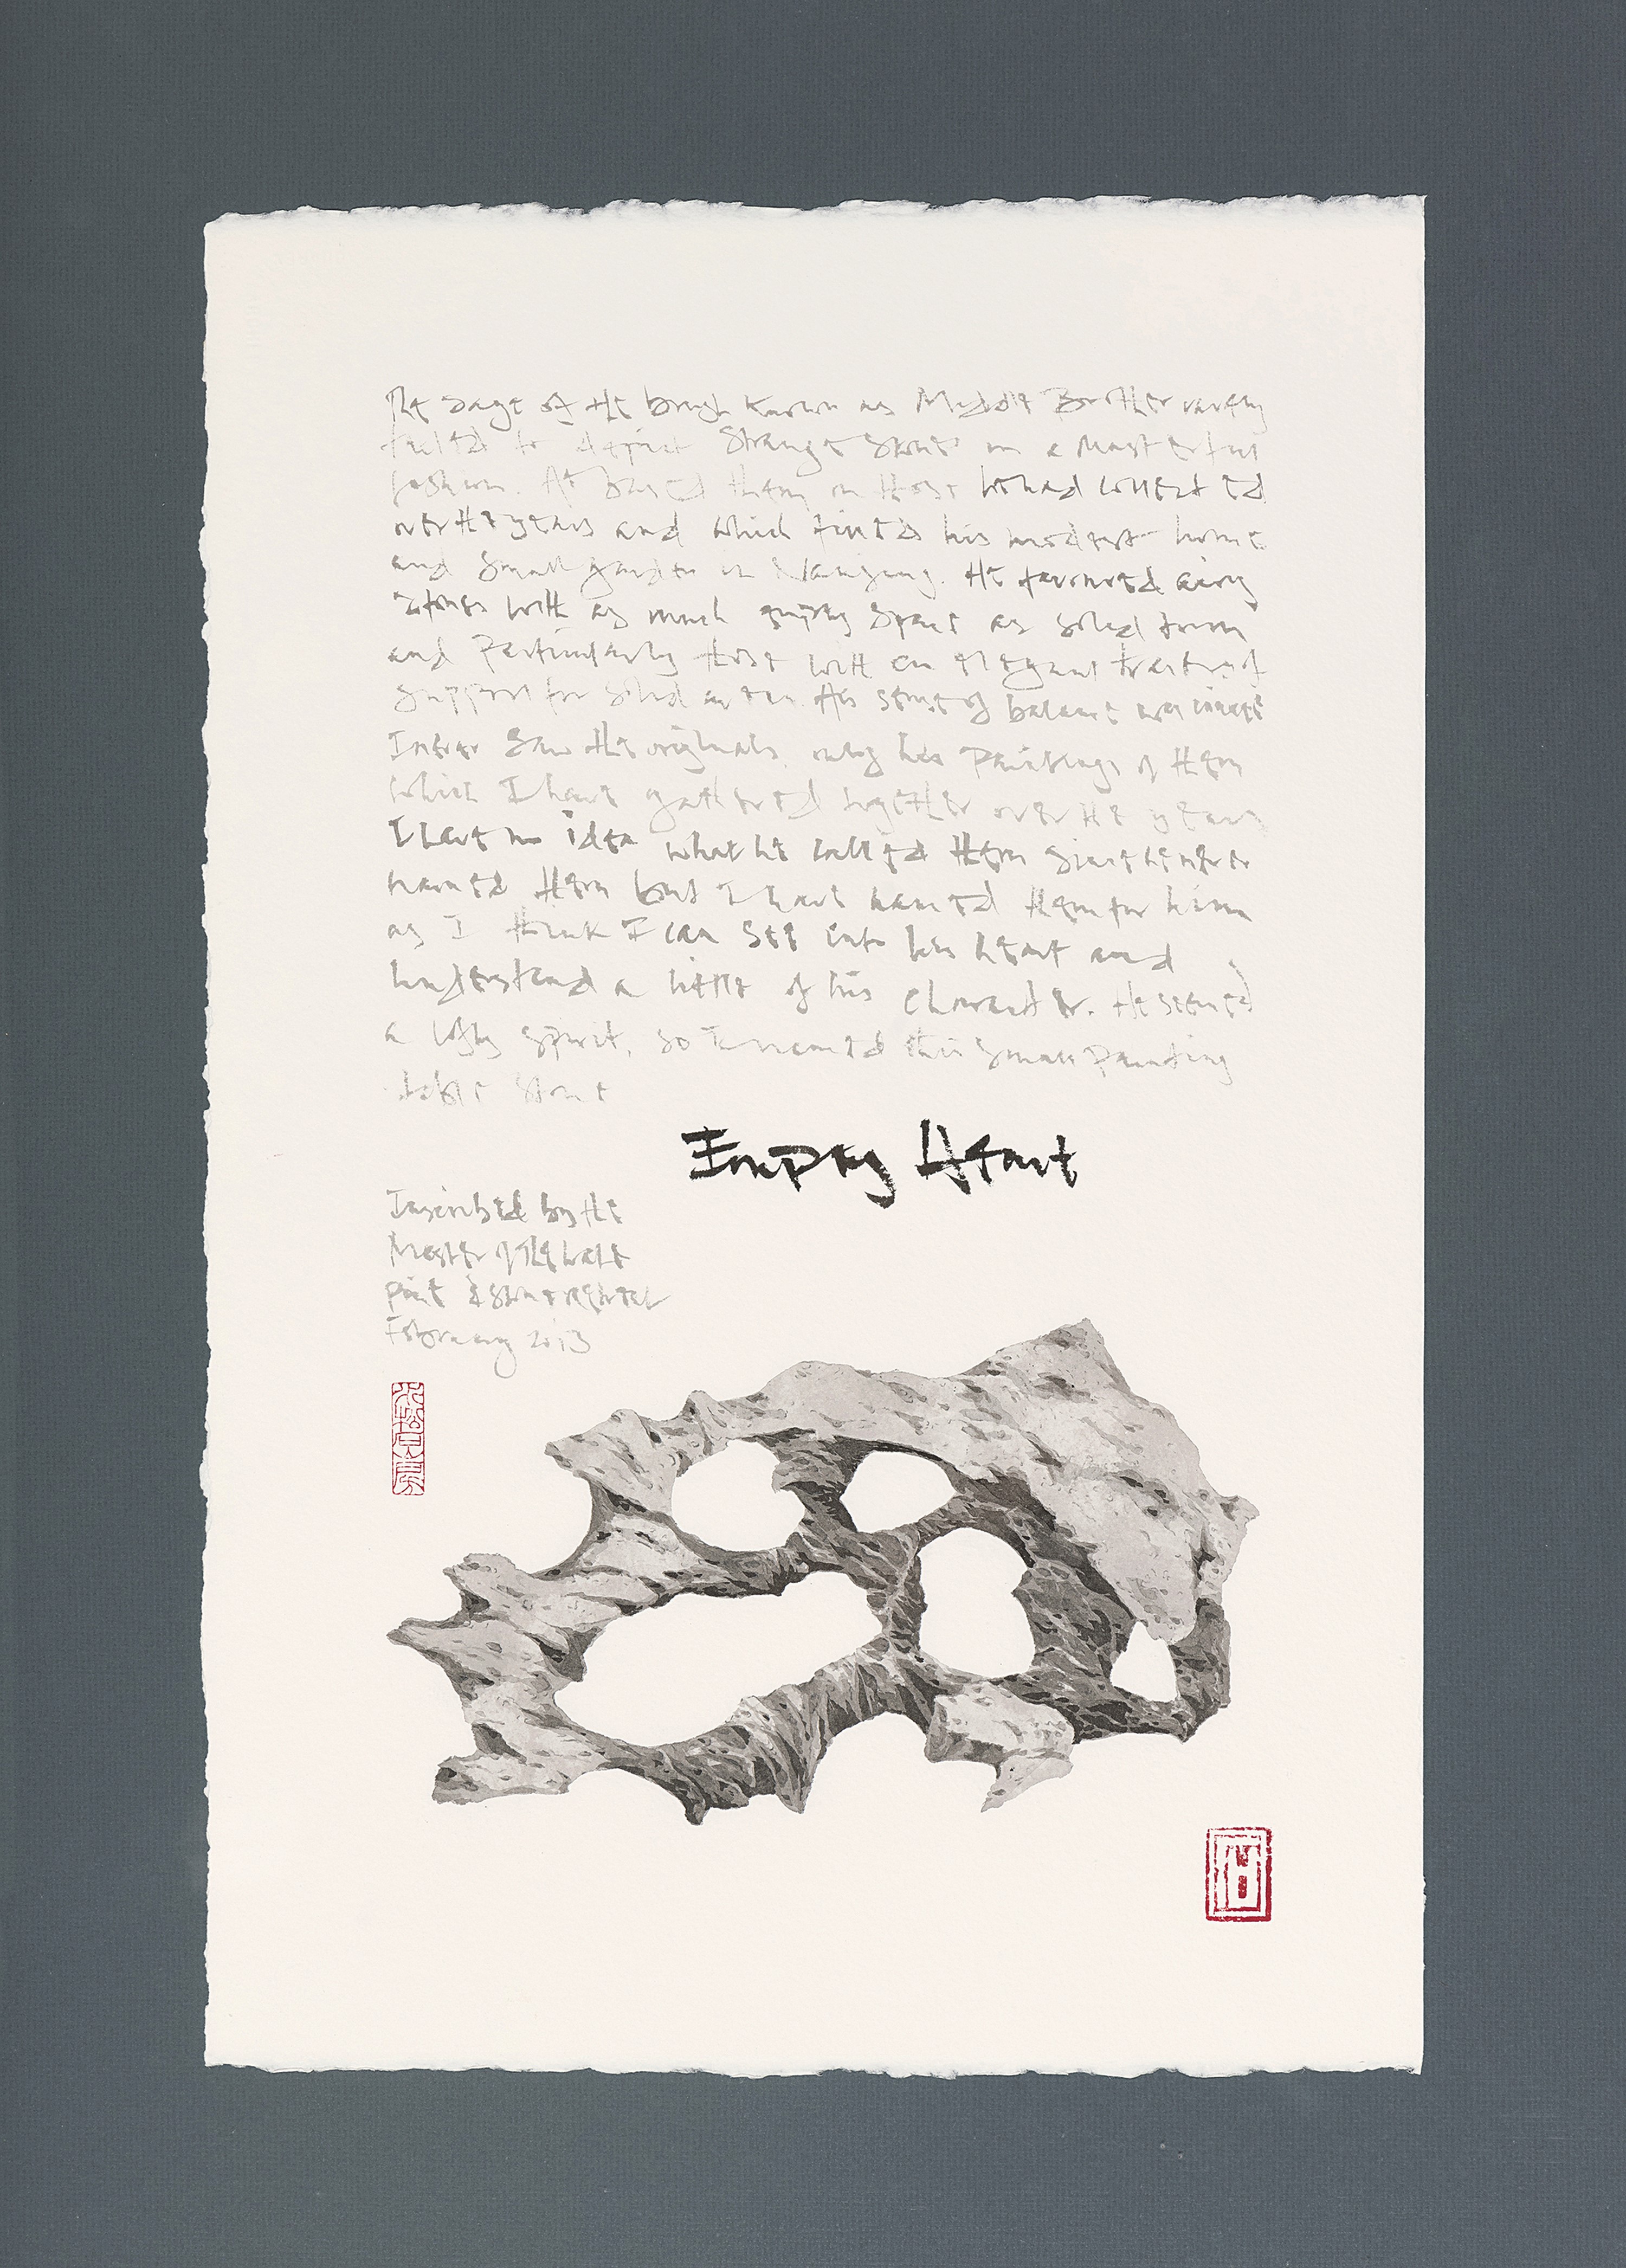 The Sage of the brush known as Middle Brother rarely
failed to depict Strange Stones in a Masterful
fashion. He based them on those he had collected
over the years and which filled his modest home
and small garden in Nanjing. He favoured airy
stones with as much empty space as solid form
and Particularly those with an elegant tracery of
support for solid areas. His sense of balance was innate
I never saw the originals, only his Paintings of them
which I have gathered together over the years
I have no idea what he called them since he never
named them but I have named them for him
as I think I can see into his heart and
understand a little of his character. He seemed
a lofty spirit, so I named this small painting
table stone
Empty Heart
Inscribed by the
Master of the Water
Pine & Stone retreat
February 2013